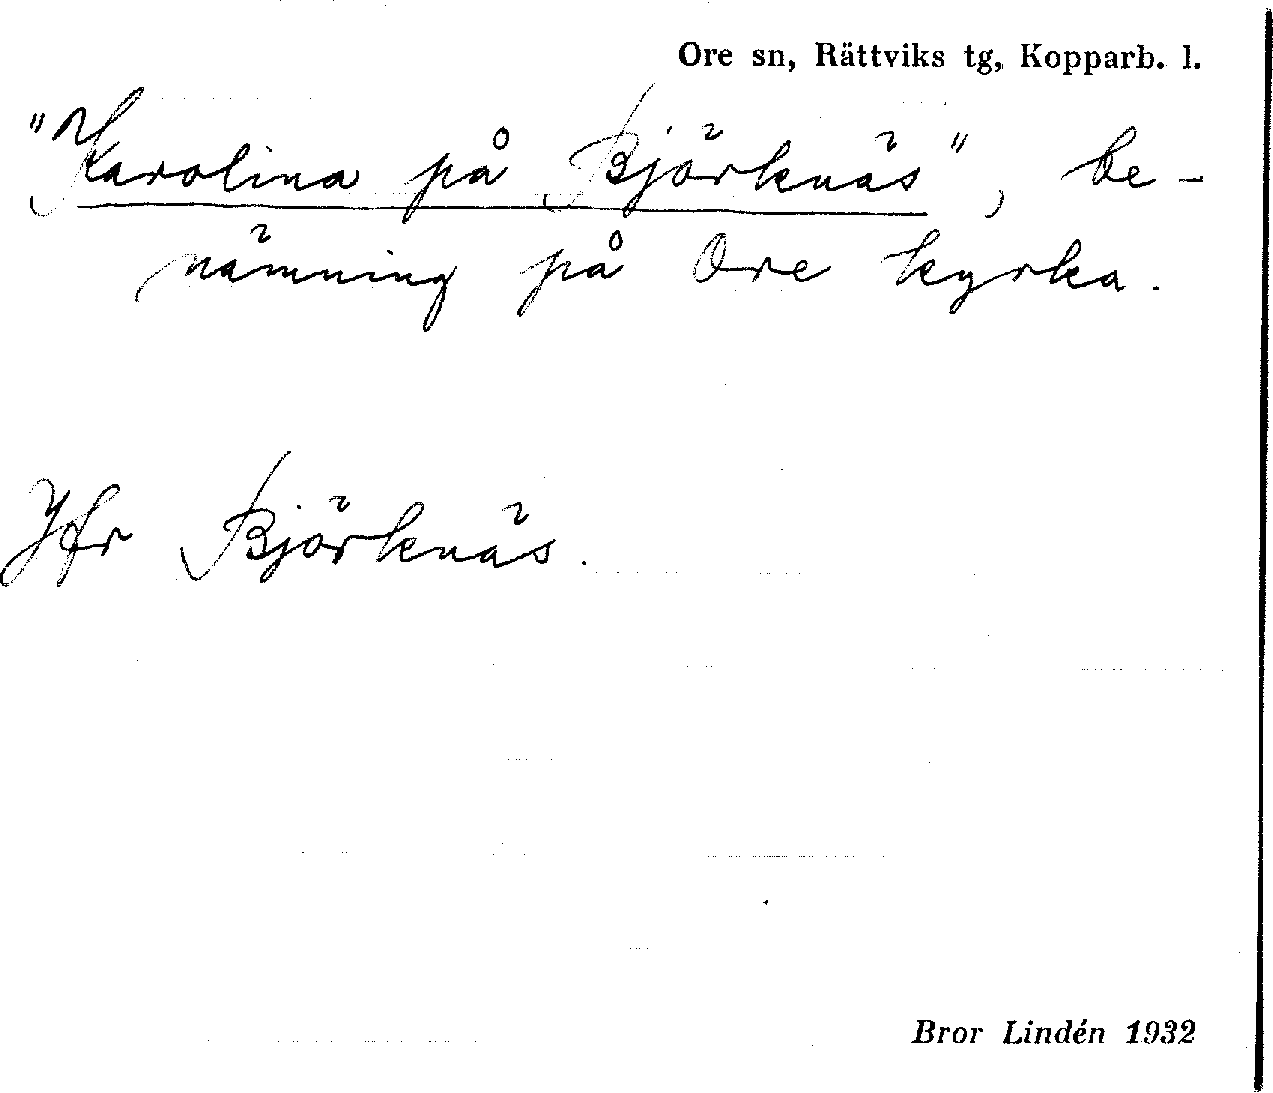 Ore sn, Rättviks tg, Kopparb. l.
"Karolina på Björknäs", be-
nämning på Ore kyrka.
Jfr Björknäs.
Bror Lindén 1932